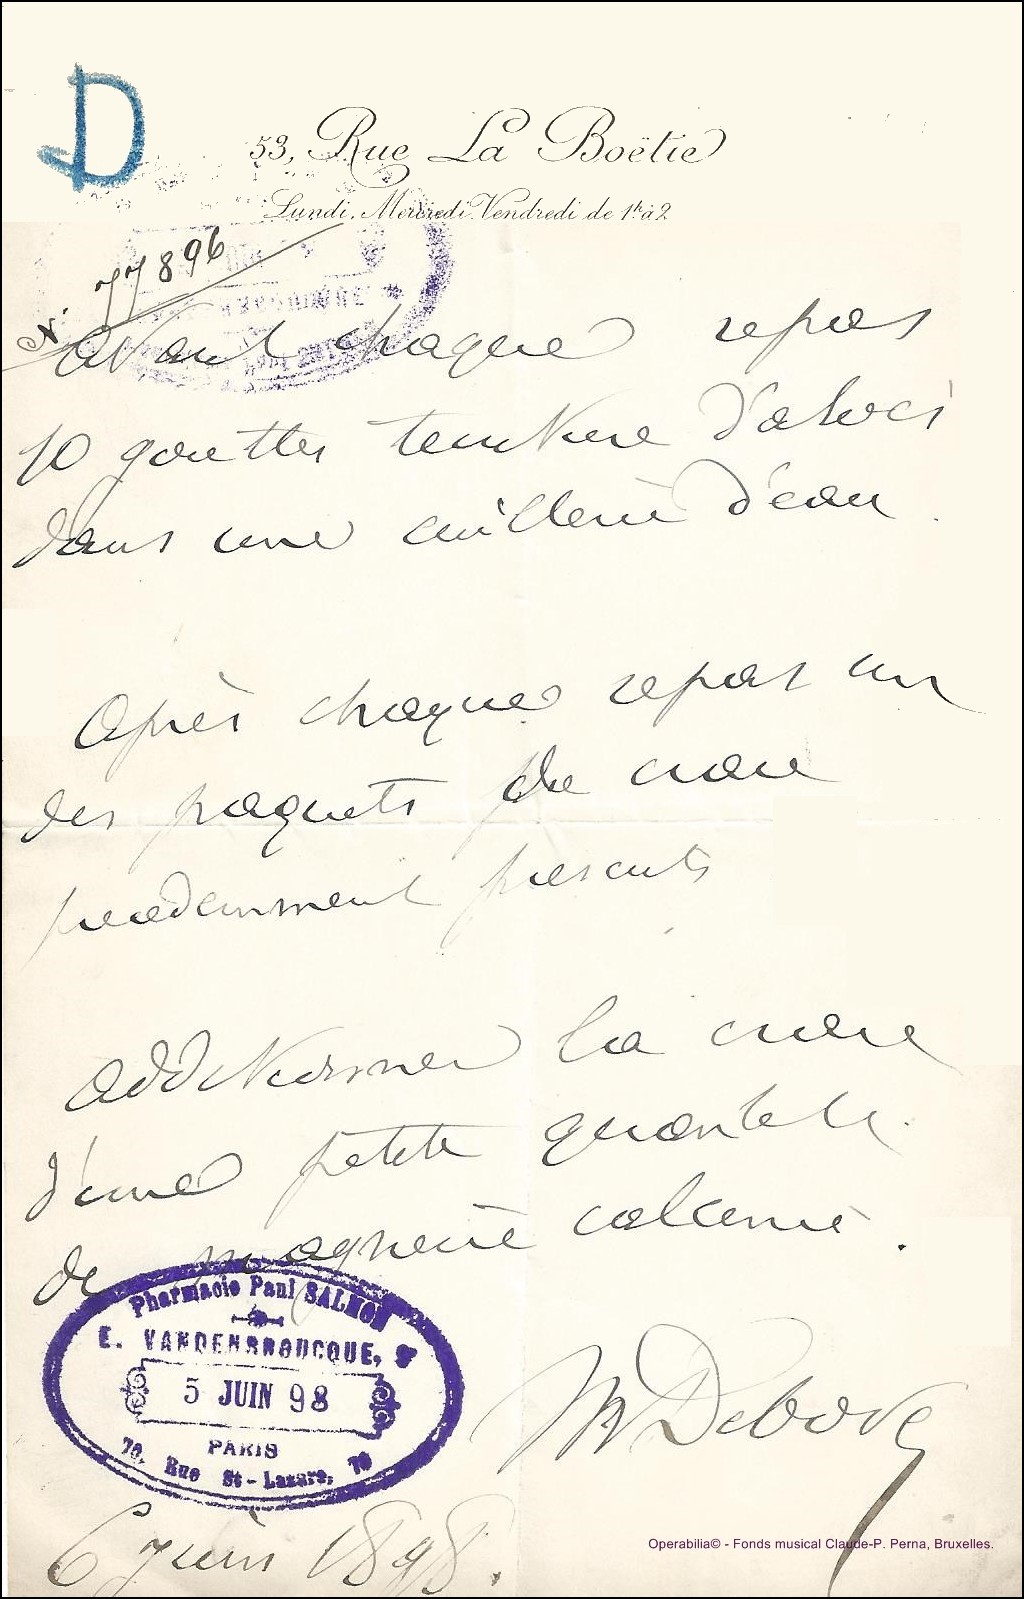 D
53, Rue La Boëtie
Lundi, Mercredi, Vendredi de 1h à 2
No 77896
avant chaque repas
10 gouttes teinture d'
dans une cuillerée d'eau.
Après chaque repas un
des paquets de craie
precedemment prescrits
additionner la craie
d'une petite quantité
de magnesie calcinée.
Pharmacie Paul SALMON
E. VANDENBROUCQUE, Sr
5 JUIN 98
PARIS
70, Rue St-Lazare, 70
M Debove
6 juin 1898.
Operabilia© - Fonds musical Claude-P. Perna, Bruxelles.